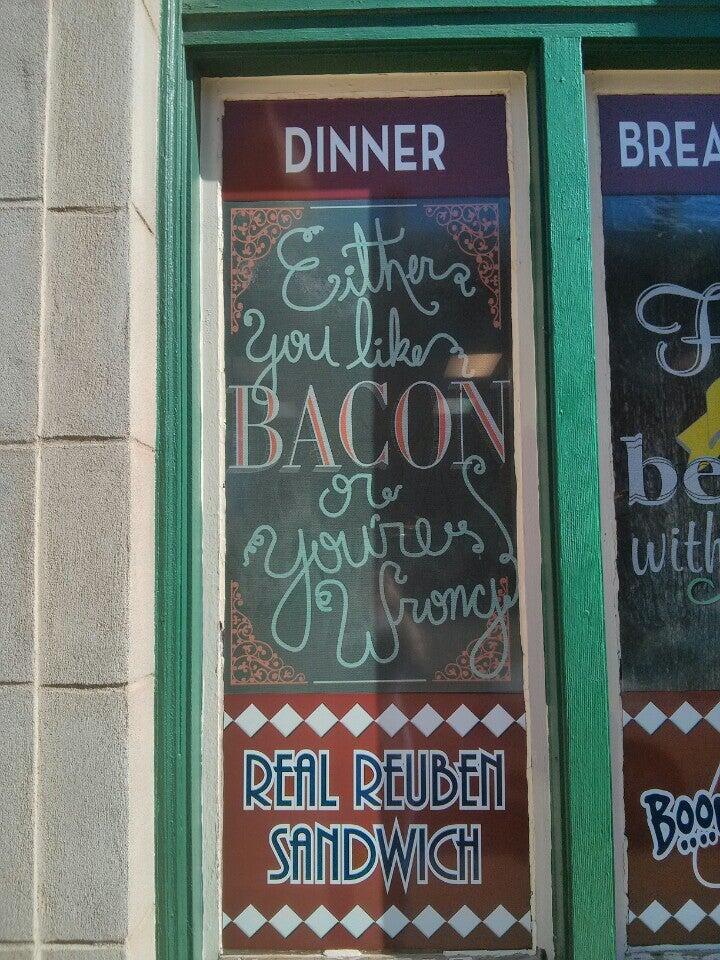 DINNER
Either
You like
BACON
or
You're
Wrong
REAL REUBEN
SANDWICH
with